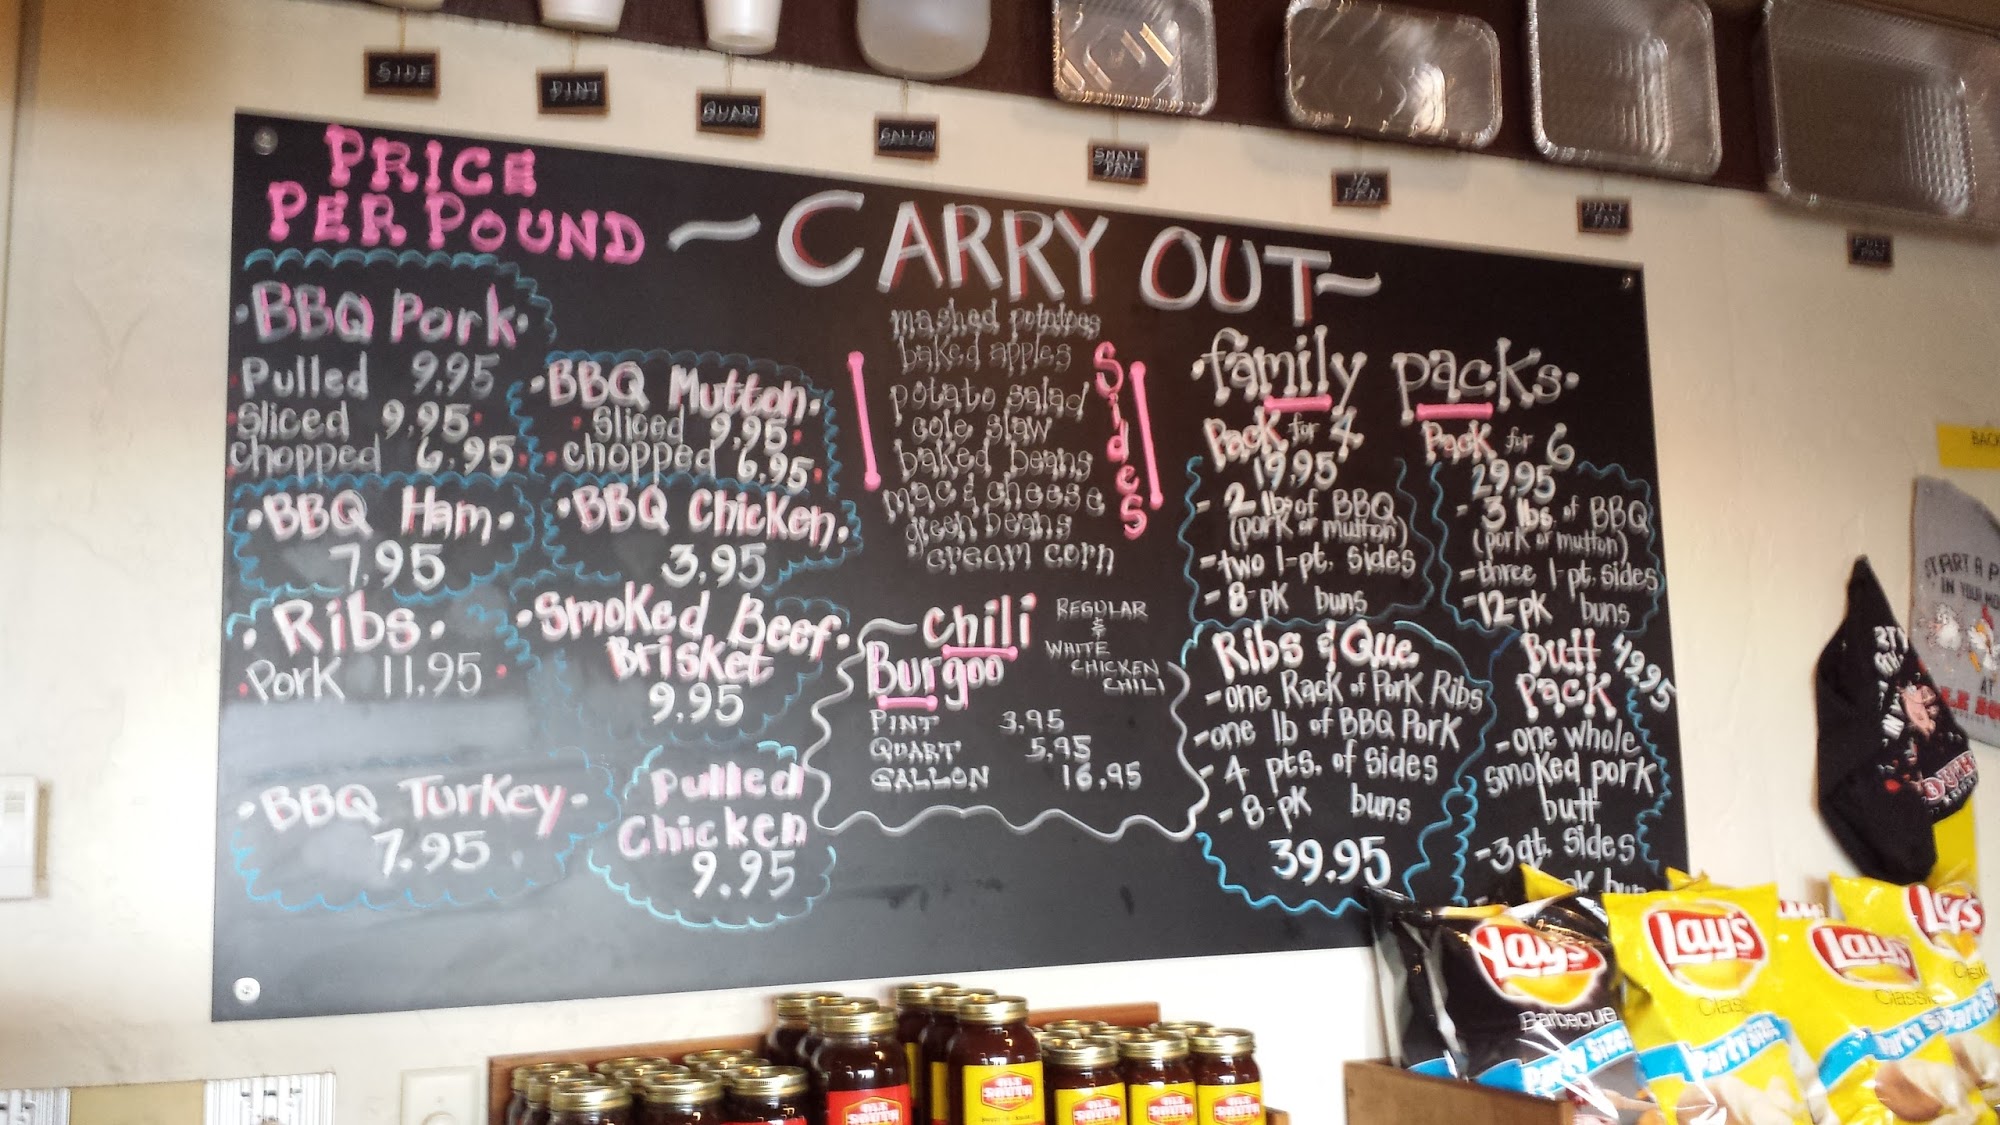 SIDE
PINT
QUART
GALLON
SMALL
PAN
1/3
PAN
HALF
PAN
FULL
PAN
PRICE
PER POUND
~CARRY OUT~
·BBQ Pork·
Pulled 9.95
Sliced 9.95
chopped 6.95
·BBQ Ham·
7.95
·Ribs·
Pork 11.95
·BBQ Turkey·
7.95
·BBQ Mutton·
Sliced 9.95
chopped 6.95
·BBQ Chicken·
3.95
·Smoked Beef·
Brisket
9.95
Pulled
Chicken
9.95
mashed potatoes
baked apples
potato salad
cole slaw
baked beans
mac & cheese
green beans
cream corn
Sides
Chili
Burgoo
REGULAR
&
WHITE
CHICKEN
CHILI
PINT 3.95
QUART 5.95
GALLON 16.95
·family packs·
Pack for 4
19.95
- 2 lbs of BBQ
(pork or mutton)
- two 1-pt. sides
- 8-pk buns
Pack for 6
29.95
- 3 lbs. of BBQ
(pork or mutton)
- three 1-pt. sides
- 12-pk buns
Ribs & Que
- one Rack of Pork Ribs
- one lb of BBQ Pork
- 4 pts. of sides
- 8-pk buns
39.95
Butt 49.95
Pack
- one whole
smoked pork
butt
- 3 qt. sides
BACK
START A P
IN YOUR MO
AT
Lay's
Barbecue
Party Size!
Lay's
Classic
Party Size
Lay's
Classic
Party Size
Lay's
Classic
Party Size
OLE
SOUTH
OLE
SOUTH
OLE
SOUTH
OLE
SOUTH
OLE
SOUTH